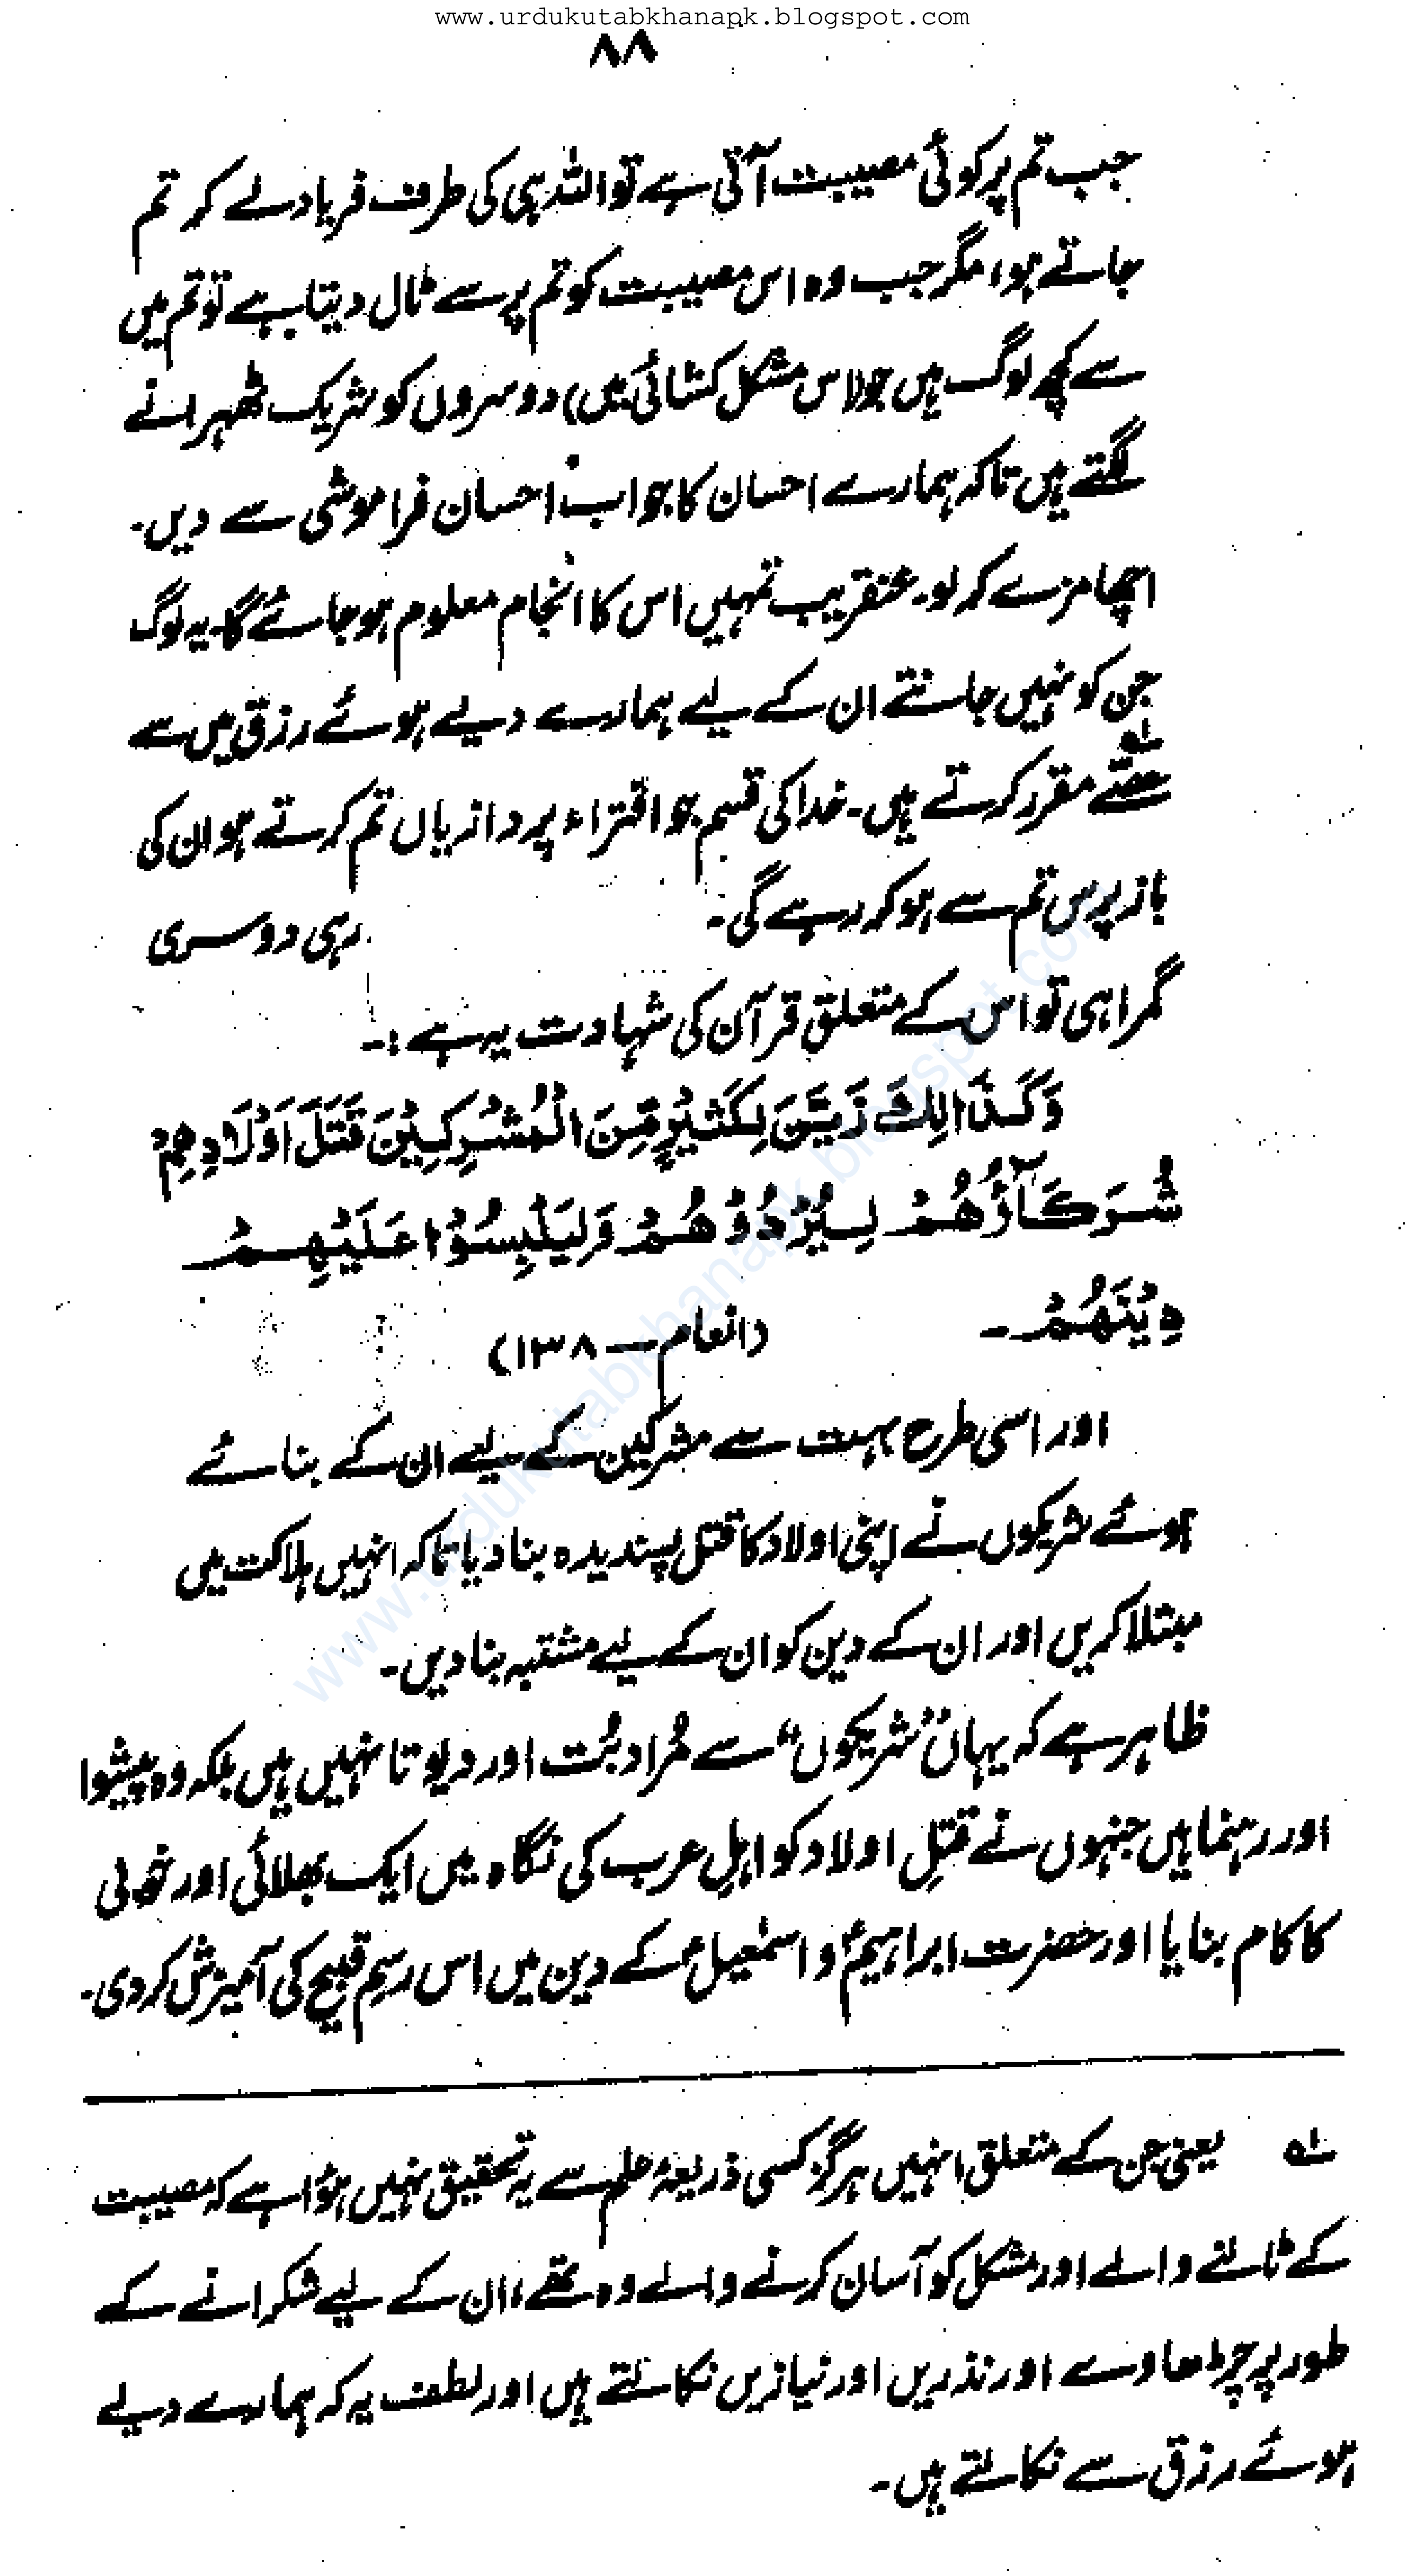 www.urdukutabkhanapk.blogspot.com
۸۸
جب تم پر کوئی مصیبت آتی ہے تو اللہ ہی کی طرف فریاد لے کر تم
جاتے ہو، مگر جب وہ اس مصیبت کو تم پر سے ٹال دیتا ہے تو تم میں
سے کچھ لوگ ہیں جو (اس مشکل کشائی میں) دوسروں کو شریک ٹھہرانے
لگتے ہیں تاکہ ہمارے احسان کا جواب احسان فراموشی سے دیں۔
اچھا مزے کر لو۔ عنقریب تمہیں اس کا انجام معلوم ہو جائے گا۔ یہ لوگ
جن کو نہیں جانتے ان کے لیے ہمارے دیے ہوئے رزق میں سے
حصّے مقرر کرتے ہیں۔ خدا کی قسم جو افتراء پردازیاں تم کرتے ہو ان کی
باز پرس تم سے ہو کر رہے گی۔ رہی دوسری
گمراہی تو اس کے متعلق قرآن کی شہادت یہ ہے:۔
وَكَذَالِكَ زَيَّنَ لِكَثِيْرٍ مِّنَ الْمُشْرِكِيْنَ قَتْلَ اَوْلَادِهِمْ
شُرَكَآؤُهُمْ لِيُرْدُوْهُمْ وَلِيَلْبِسُوْا عَلَيْهِمْ
دِيْنَهُمْ۔ (انعام — ۱۳۸)
اور اسی طرح بہت سے مشرکین کے لیے ان کے بنائے
ہوئے شریکوں نے اپنی اولاد کا قتل پسندیدہ بنا دیا تاکہ انہیں ہلاکت میں
مبتلا کریں اور ان کے دین کو ان کے لیے مشتبہ بنا دیں۔
ظاہر ہے کہ یہاں "شریکوں" سے مُراد بُت اور دیوتا نہیں ہیں بلکہ وہ پیشوا
اور رہنما ہیں جنہوں نے قتلِ اولاد کو اہلِ عرب کی نگاہ میں ایک بھلائی اور خوبی
کا کام بنایا اور حضرت ابراہیمؑ و اسمٰعیلؑ کے دین میں اس رسمِ قبیح کی آمیزش کر دی۔
لہ یعنی جن کے متعلق انہیں ہرگز کسی ذریعۂ علم سے یہ تحقیق نہیں ہوا ہے کہ مصیبت
کے ٹالنے والے اور مشکل کو آسان کرنے والے وہ تھے، ان کے لیے شکرانے کے
طور پر چڑھاوے اور نذریں اور نیازیں نکالتے ہیں اور لطف یہ کہ ہمارے دیے
ہوئے رزق سے نکالتے ہیں۔
www.urdukutabkhanapk.blogspot.com